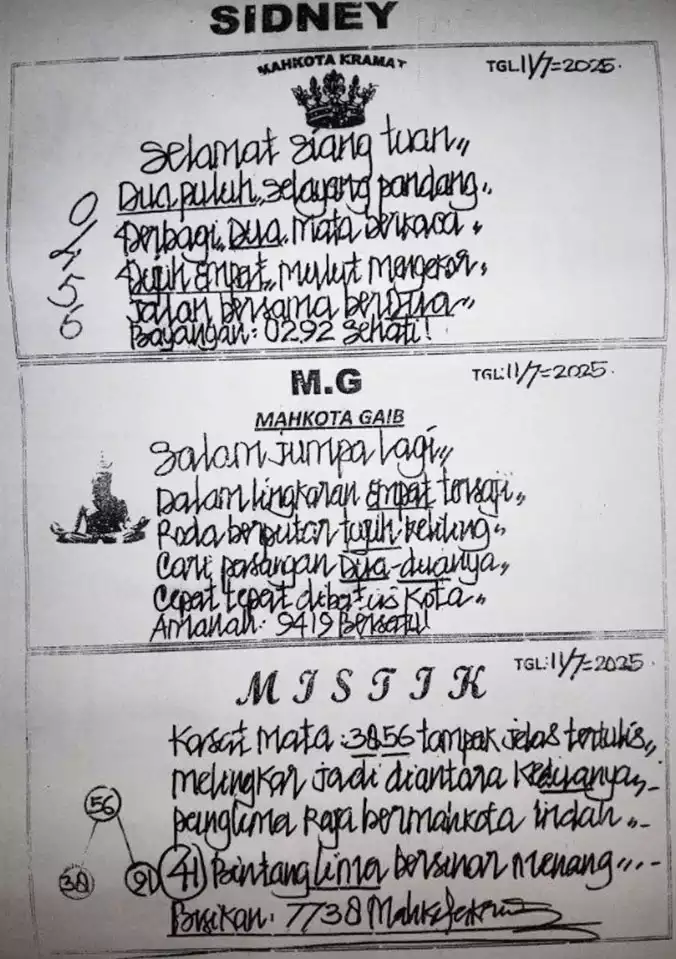 SIDNEY
MAHKOTA KRAMAT
TGL.11/7=2025.
Selamat siang tuan,,
Dua puluh,, selayang pandang,,
Berbagi,, Dua. Mata berkaca,
Tujuh empat,, mulut mengekor,
Jalan bersama berdua,,
Bayangan: 0292 Sehati!
0
5
6
M.G
TGL:11/7=2025.
MAHKOTA GAIB
Salam jumpa lagi,,
Dalam lingkaran empat tersaji,,
Roda berputar tujuh keliling,,
Cari pasangan Dua-duanya,,
Cepat tepat kota,,
Amanah: 9419 Bersatu!
TGL:11/7=2025.
MISTIK
Kasat Mata: 3856 tampak jelas tertulis,,
melingkar jadi diantara keduanya,,
panglima Raja bermahkota indah,,
56
38
91
41 Bintang lima bersinar menang,,...
Bisikan: 7738